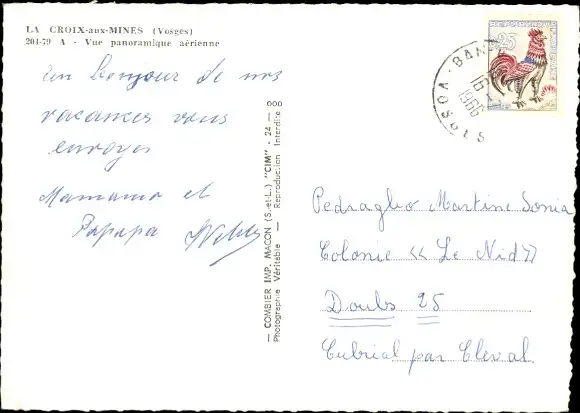 LA CROIX-aux-MINES (Vosges)
204-79 A - Vue panoramique aérienne
Un bonjour de nos
vacances vous
envoyer
Mamama et
Papapa
— COMBIER IMP. MACON (S.-et-L.) "CIM" - 24 — 000
Photographie Véritable — Reproduction Interdite
0,25
1966
VOSGES
Pedraglio Martine Sonia
Colonie « Le Nid »
Doubs 25
Cubrial par Cleval